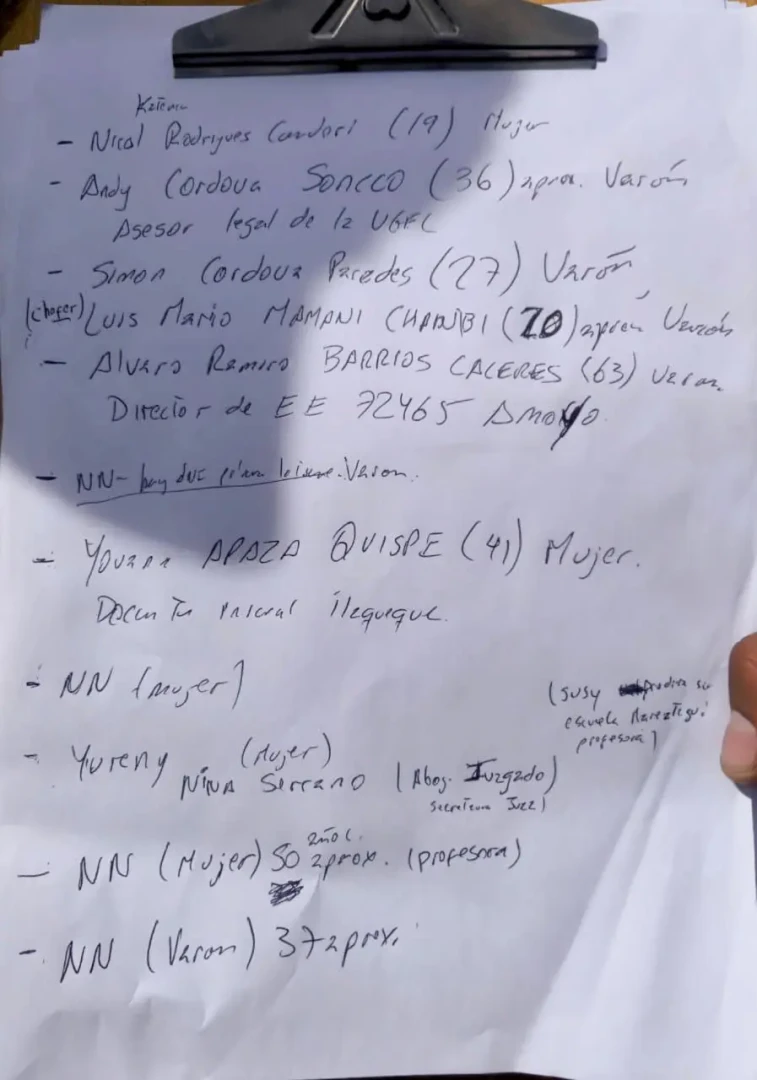 - Nicol Rodrigues Condori (19) Mujer
- Andy Cordova Soncco (36) aprox. Varón
Asesor legal de la UGEL
- Simon Cordova Paredes (27) Varón
(chofer) Luis Mario MAMANI CHAMBI (70) aprox Varón
- Alvaro Ramiro BARRIOS CACERES (63) Varon
Director de EE 72465 Amoyo.
- NN- hay Varon.
- APAZA QUISPE (41) Mujer.
Inicial
- NN (mujer)
(SUSY
escuela
profesora)
- Yureny (Mujer)
NINA Serrano (Abog. Juzgado)
- NN (Mujer) 50 años aprox. (profesora)
- NN (Varon) 37 aprox.